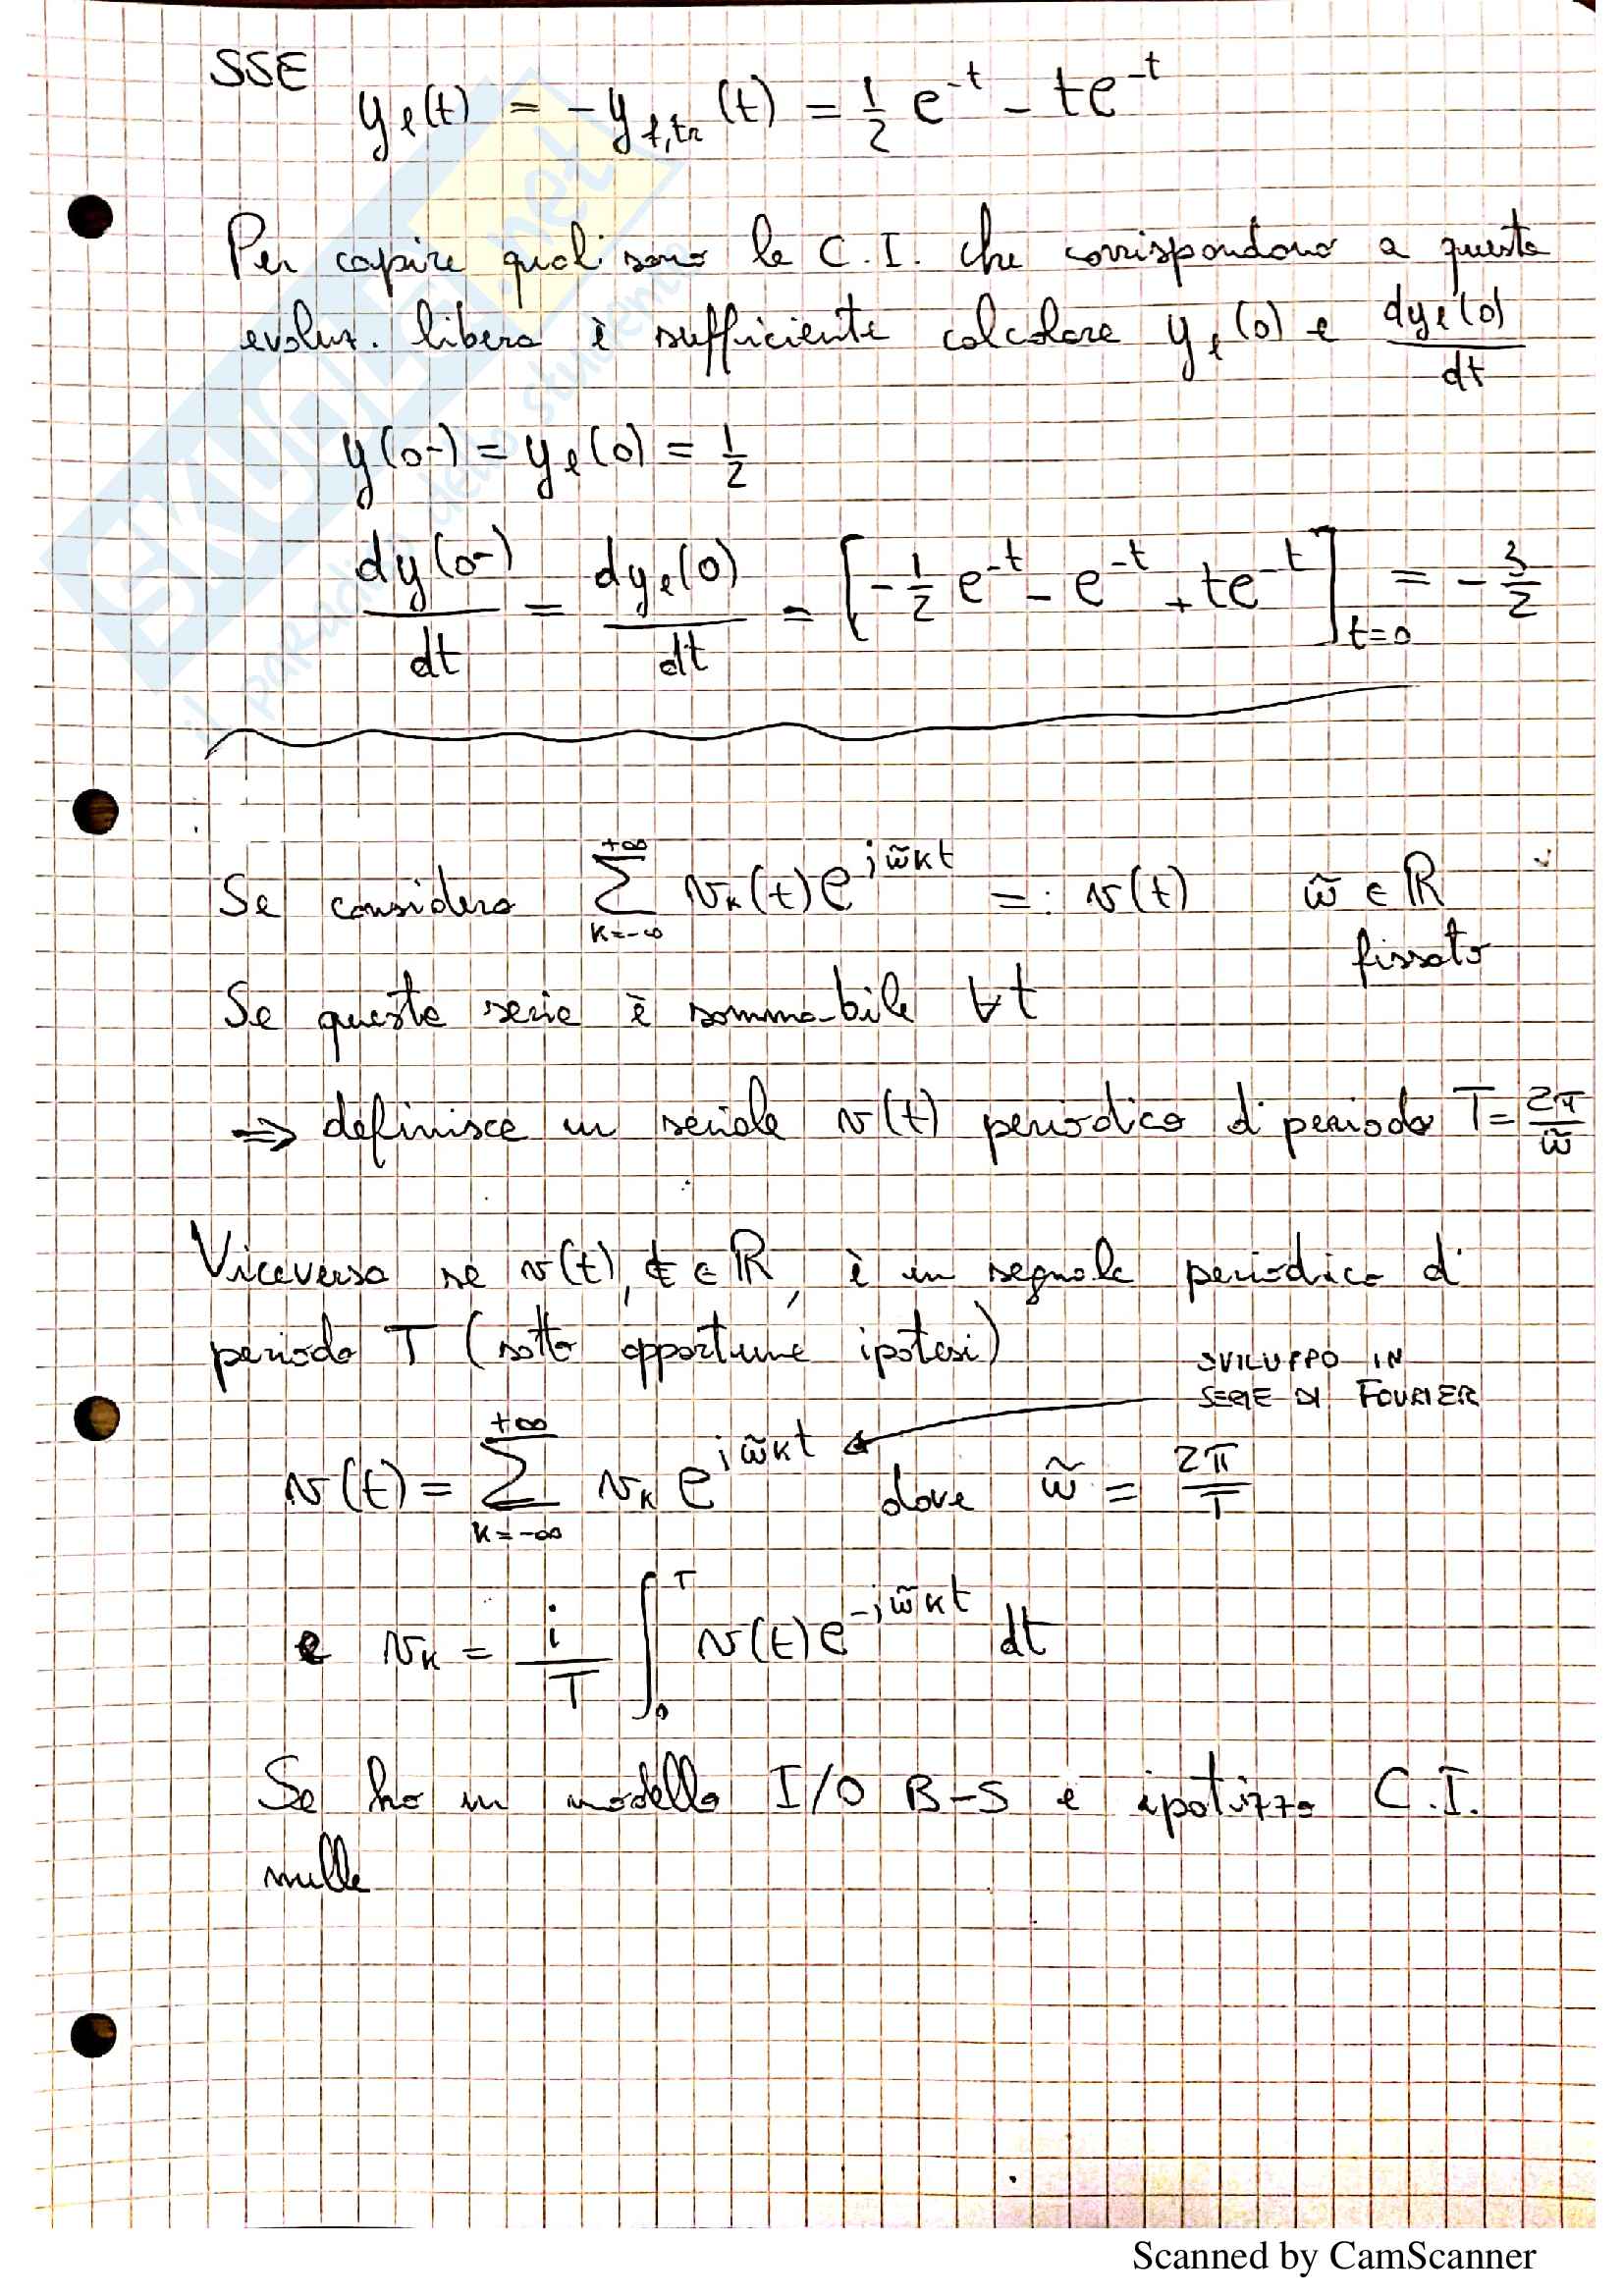 SSE
y_ℓ(t) = -y_{f,tr}(t) = 1/2 e^{-t} - te^{-t}
Per capire quali sono le C.I. che corrispondono a questa
evoluz. libera è sufficiente calcolare y_ℓ(0) e dy_ℓ(0)/dt
y(0-) = y_ℓ(0) = 1/2
dy(0-)/dt = dy_ℓ(0)/dt = [-1/2 e^{-t} - e^{-t} + te^{-t}]_{t=0} = -3/2
Se considero \sum_{k=-∞}^{+∞} v_k(t) e^{jω̃kt} =: v(t) ω̃ ∈ ℝ
fissato
Se questa serie è sommabile ∀t
⇒ definisce un seriale v(t) periodico di periodo T = 2π/ω̃
Viceversa se v(t), t ∈ ℝ, è un segnale periodico di
periodo T (sotto opportune ipotesi)
SVILUPPO IN
SERIE DI FOURIER
v(t) = \sum_{k=-∞}^{+∞} v_k e^{jω̃kt} dove ω̃ = 2π/T
e v_k = i/T ∫_0^T v(t) e^{-jω̃kt} dt
Se ho un modello I/O B-S e ipotizzo C.I.
nulle
SKUOLA.net
il paradiso dello studente
Scanned by CamScanner